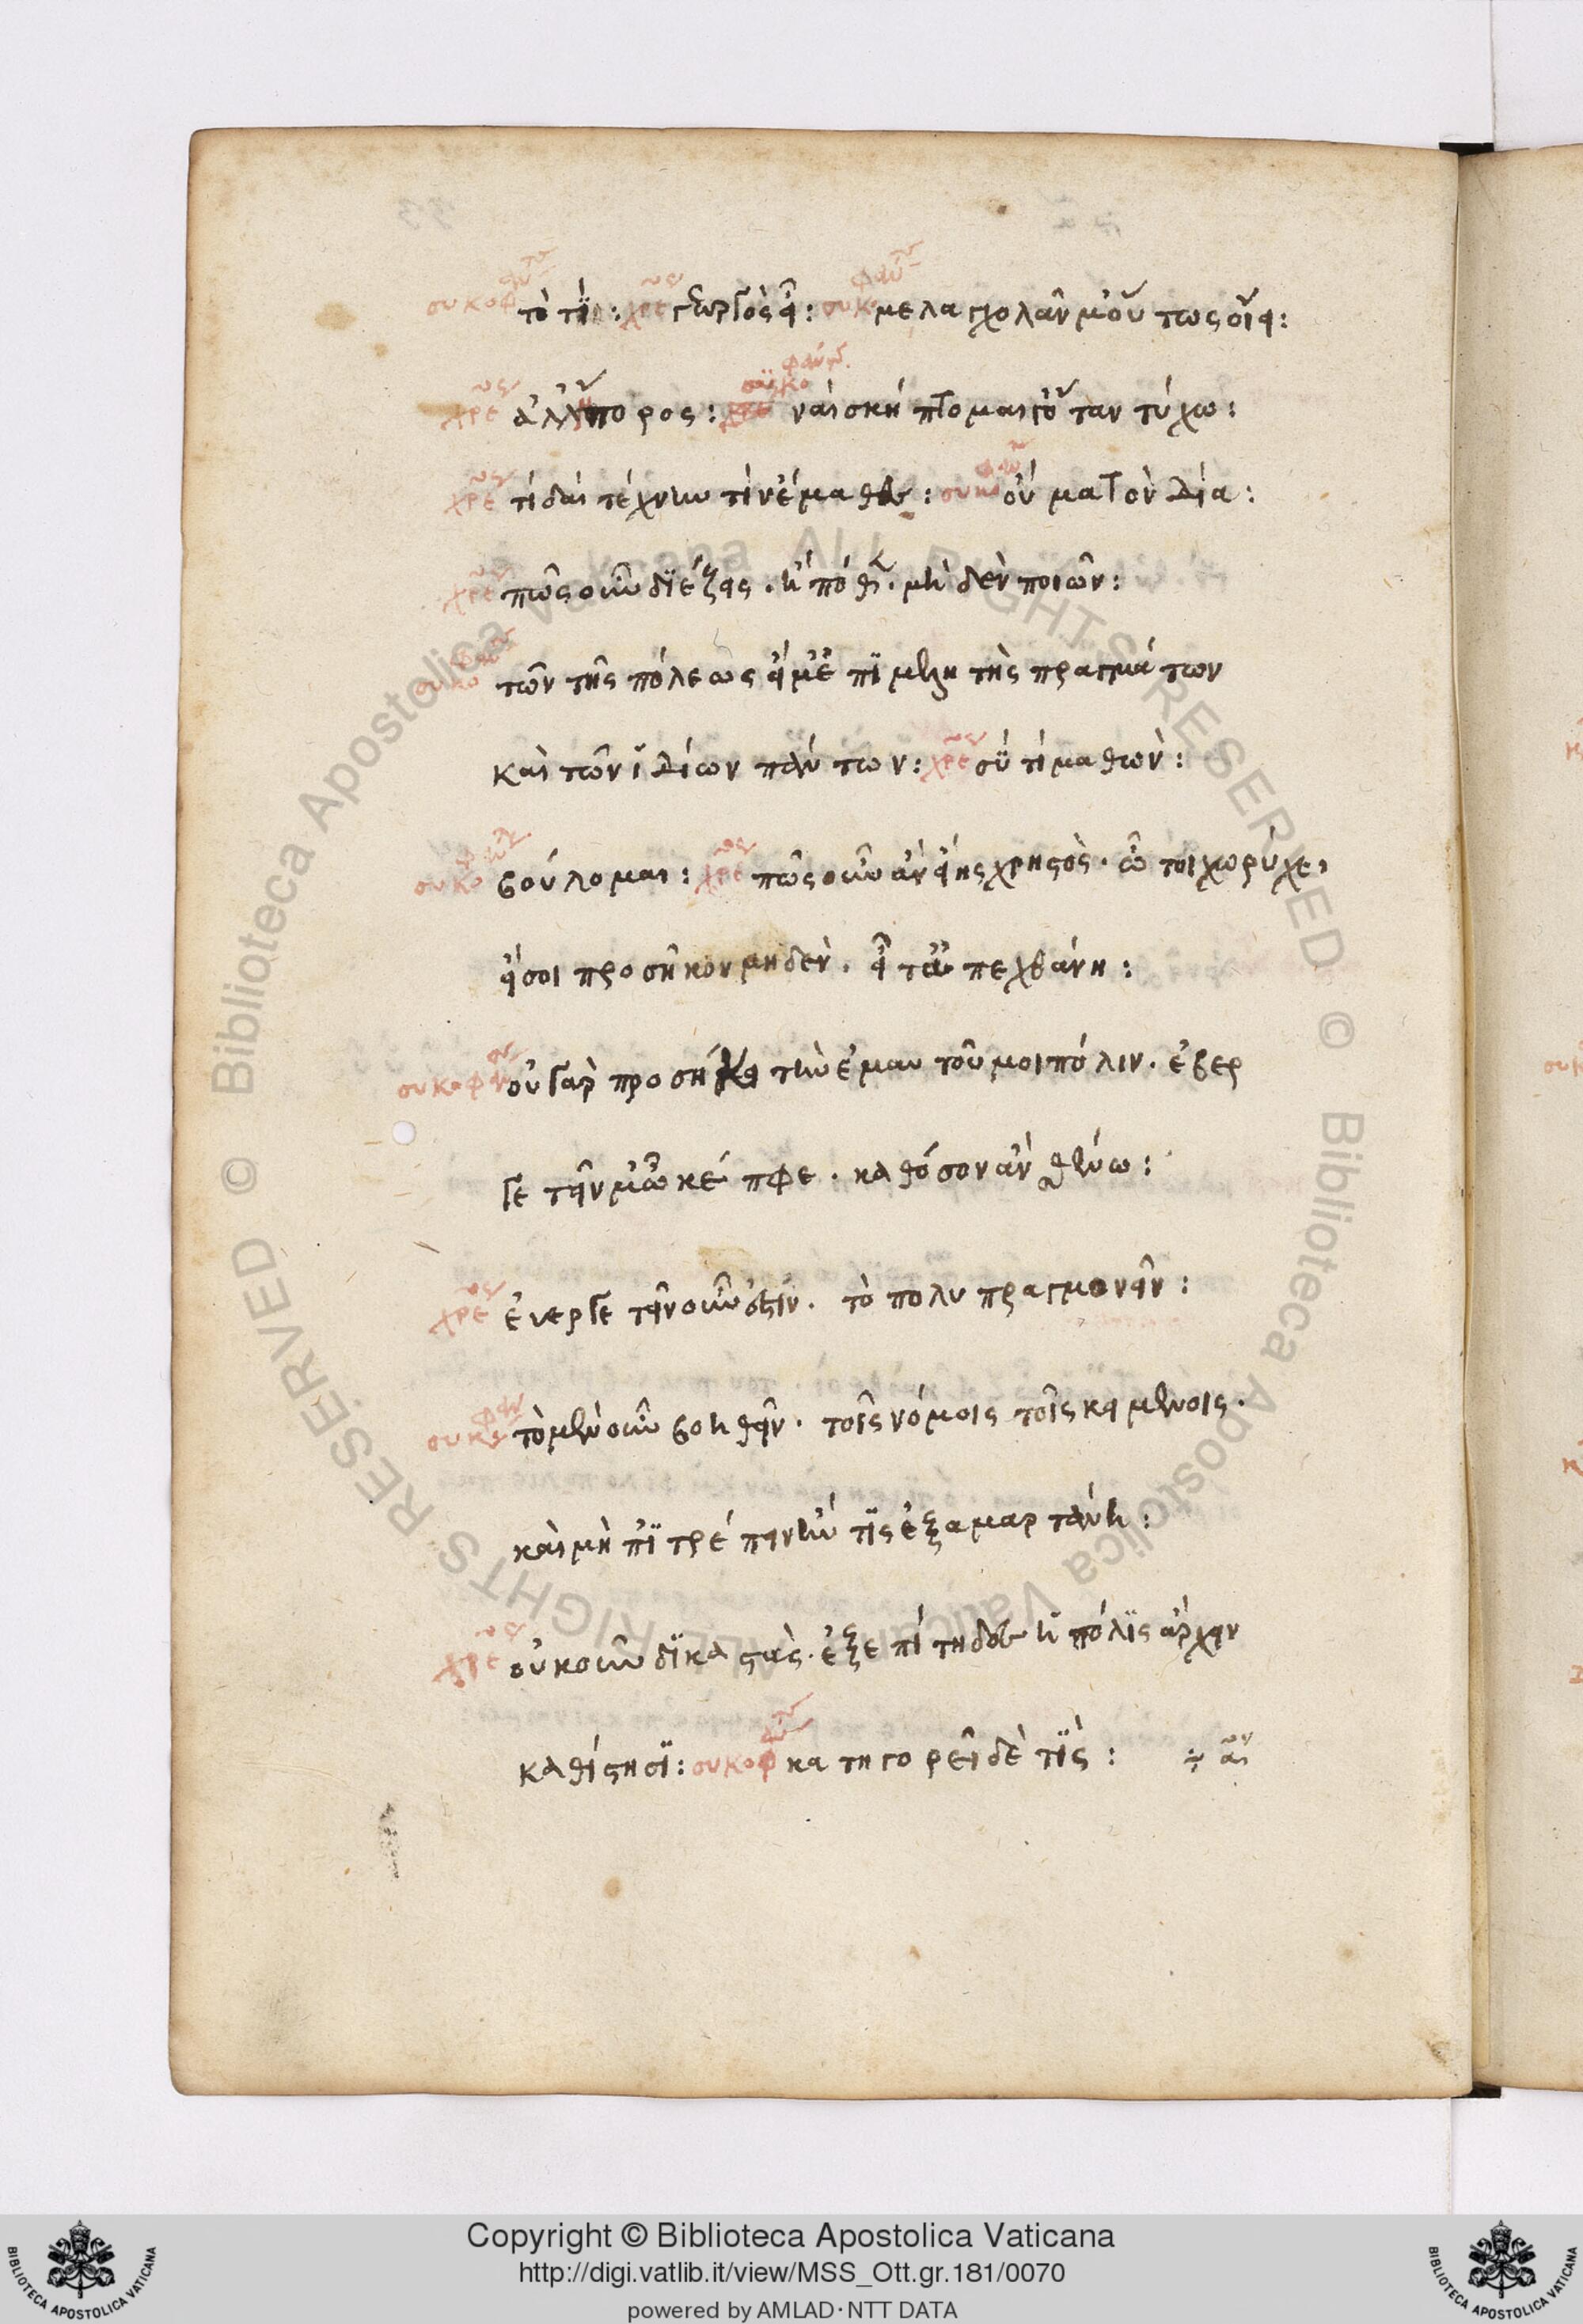 συκοφαντ τὸ τί: χρε γεωργὸς εἶ: συκοφαντ μελαγχολᾶν μ' οὕτως οἴει:
χρε ἀλλ' ἔμπορος: συκοφαντ ναὶ σκήπτομαί γ' ὅταν τύχω:
χρε τί δαὶ τέχνην τίν' ἔμαθες: συκοφ οὐ μὰ τὸν Δία:
χρε πῶς οὖν διέζης. ἢ πόθεν. μηδὲν ποιῶν:
συκοφαντ τῶν τῆς πόλεως εἴμ' ἐπιμελητὴς πραγμάτων
καὶ τῶν ἰδίων πάντων: χρε σύ τί μαθών:
συκοφ βούλομαι: χρε πῶς οὖν ἂν εἴης χρηστὸς. ὦ τοιχωρύχε,
εἴ σοι προσῆκον μηδὲν. εἶτ' ἀπεχθάνῃ:
συκοφαν οὐ γὰρ προσήκει τὴν ἐμαυτοῦ μοι πόλιν. εὐερ
γετεῖν μ' ὦ κέπφε. καθόσον ἂν σθένω:
χρε εὐεργετεῖν οὖν ἐστίν. τὸ πολυπραγμονεῖν:
συκοφαν τὸ μὲν οὖν βοηθεῖν. τοῖς νόμοις τοῖς κειμένοις.
καὶ μὴ 'πιτρέπειν ἤν τις ἐξαμαρτάνῃ:
χρε οὐκοῦν δικαστὰς. ἐξεπίτηδες ἡ πόλις ἄρχειν
καθίστησι: συκοφ κατηγορεῖ δὲ τίς:
Copyright © Biblioteca Apostolica Vaticana
http://digi.vatlib.it/view/MSS_Ott.gr.181/0070
powered by AMLAD·NTT DATA